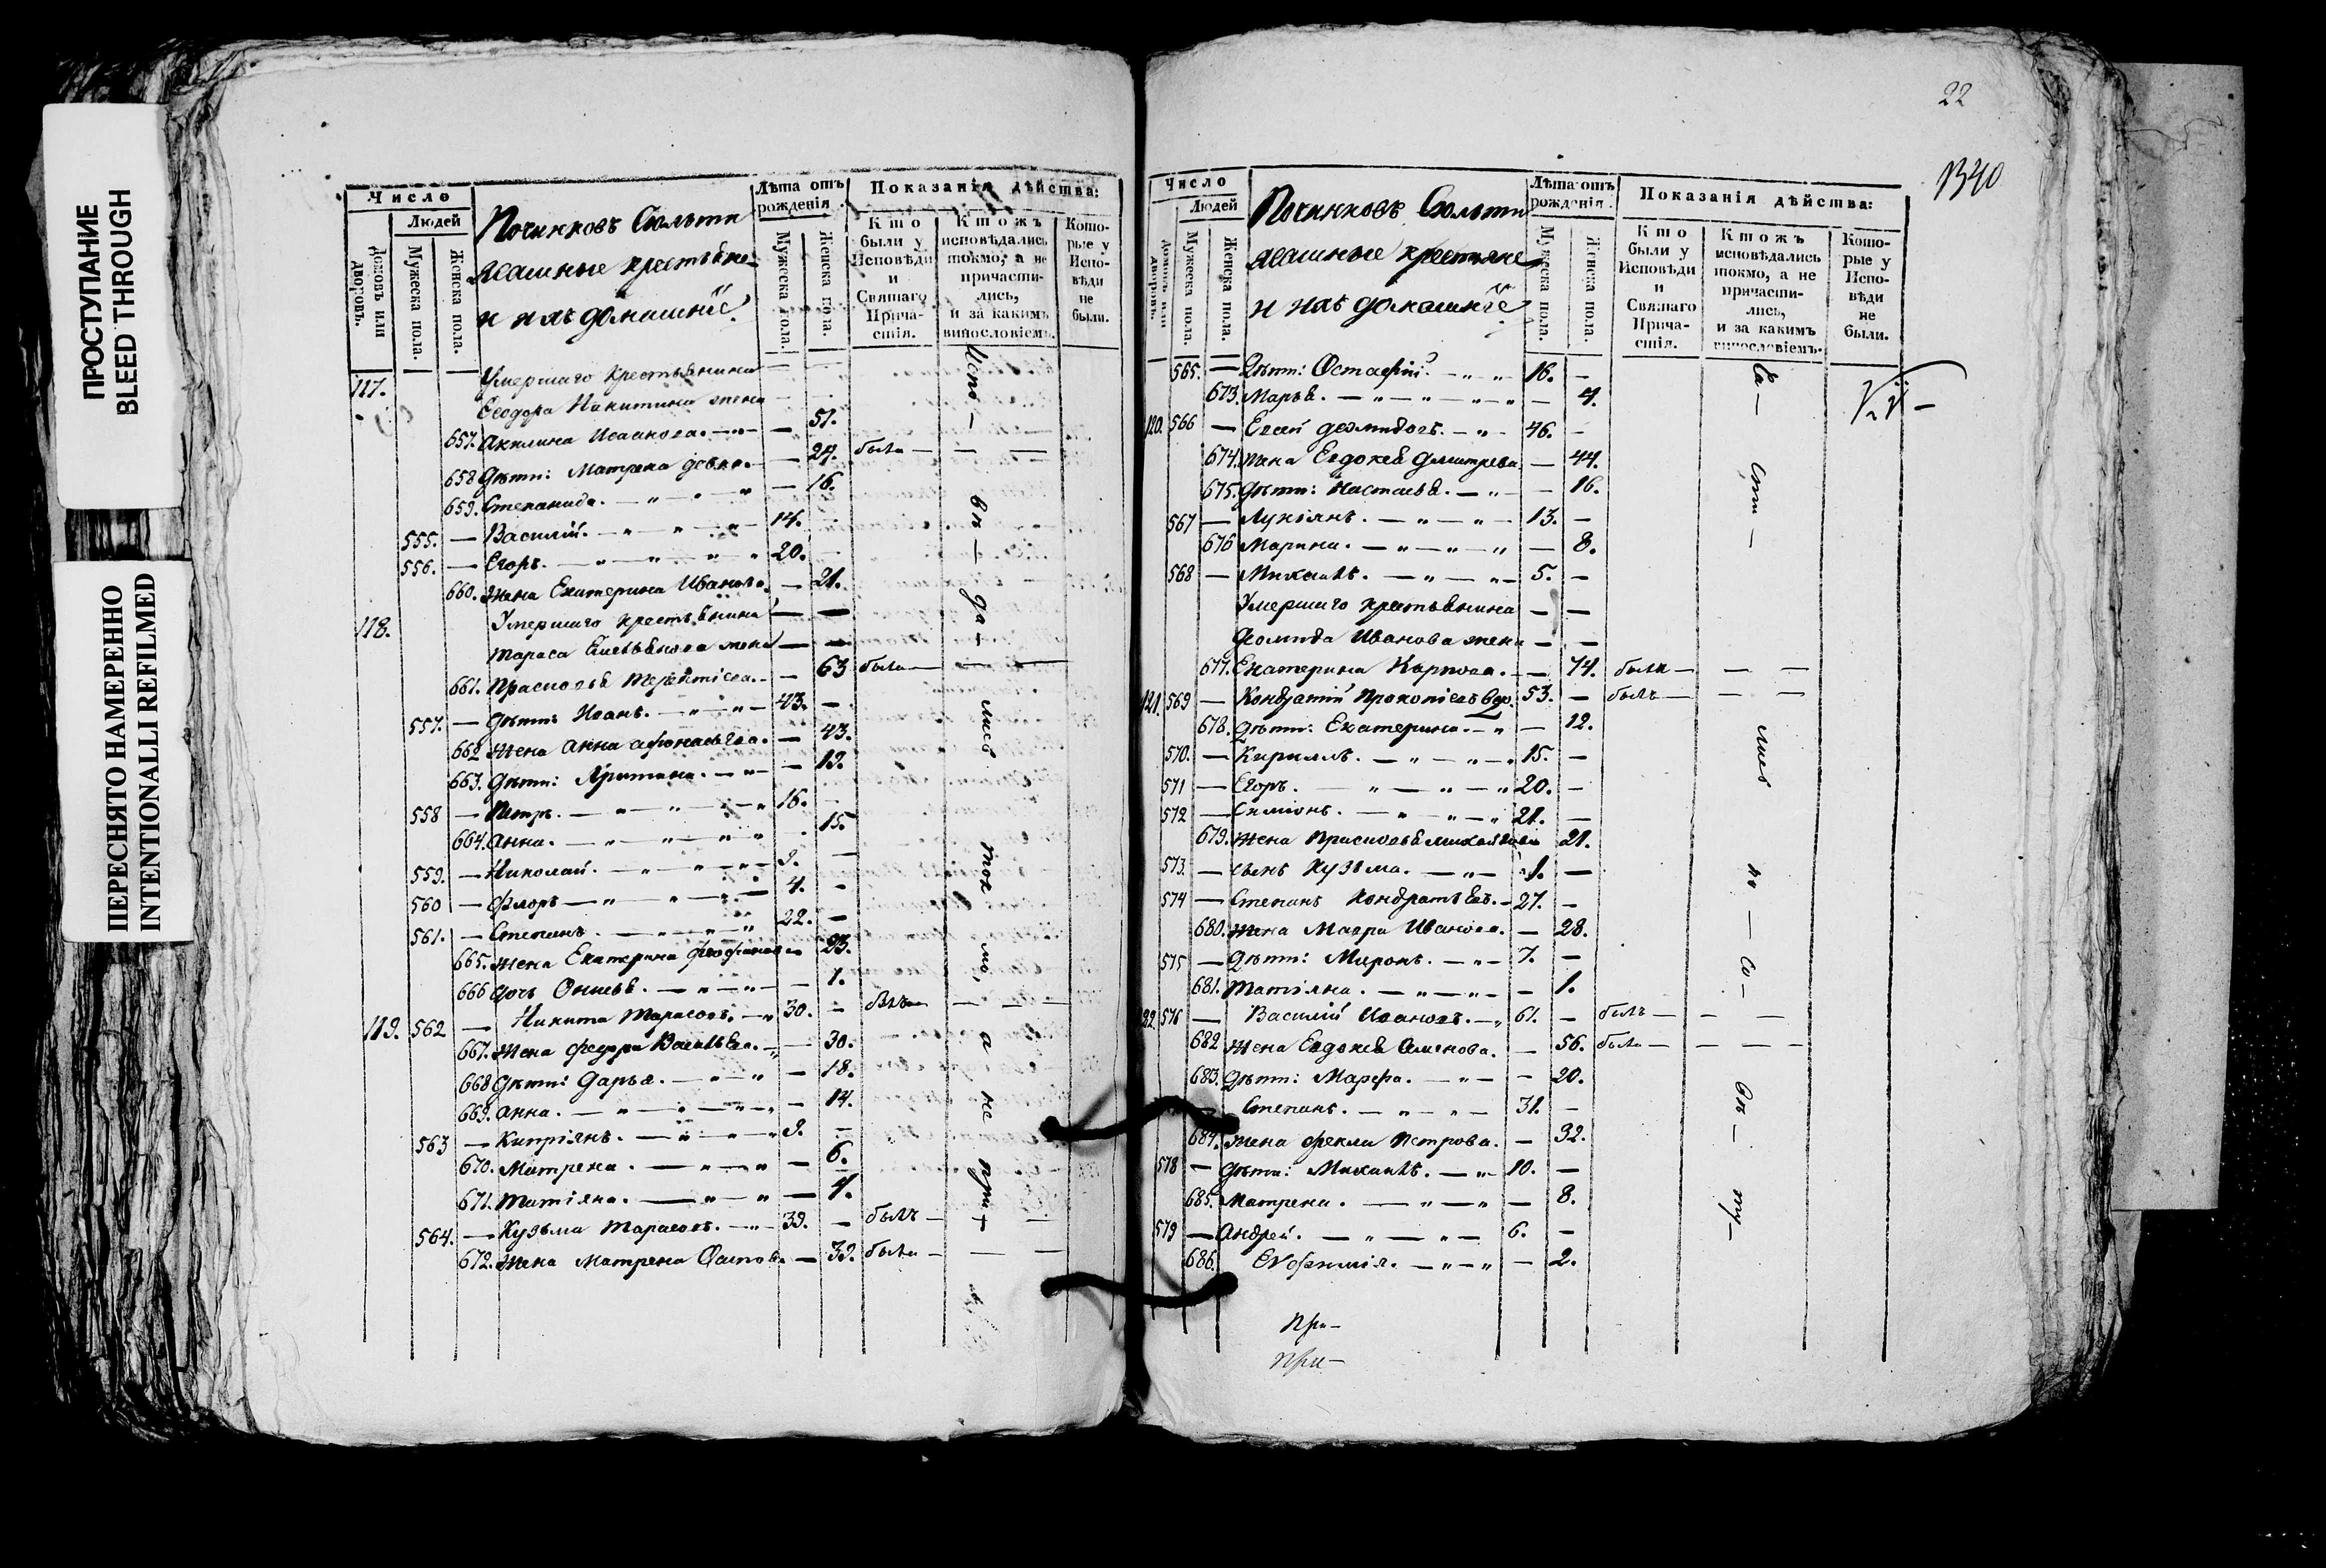 ПРОСТУПАНИЕ
BLEED THROUGH
ПЕРЕСНЯТО НАМЕРЕННО
INTENTIONALLI REFILMED
Число
Людей
Домовъ или дворовъ.
Мужеска пола.
Женска пола.
Починковъ Сюльти
машные крестьяне
и ихъ домашніе
Лѣта отъ рожденія
Мужеска пола.
Женска пола.
Показанія дѣйства:
Кто были у Исповѣди и Святаго Причастія.
Ктожъ исповѣдались токмо, а не причастились, и за какимъ винословіемъ.
Которые у Исповѣди не были.
117. Умершаго крестьянина — —
Ѳеодора Никитина жена — —
657. Акилина Исаакова. — 51.
658 Дѣти: Матрена девка. — 24. была — — —
659. Степанида. — 16.
555. — Василій. — 14. —
556. — Егоръ. — 20. —
660. Жена Екатерина Иванова. — 21.
118. Умершаго крестьянина — —
Тараса жена — —
661. Прасковья Терентіева. — 63 была — — —
557. — Дѣти: Иоанъ. — 43. —
662 Жена Анна Афонасьева. — 43.
663. Дѣти: — 19.
558 — Петръ. — 16. —
664. Анна. — 15.
559. — Николай. — 9. —
560 — Флоръ — 4. —
561. — Степанъ. — 22. —
665. Жена Екатерина — 23.
666 Дочь — 1.
119. 562 — Никита Тарасовъ. — 30. — былъ — — —
667. Жена Васильева. — 30.
668 Дѣти: Дарья. — 18.
669. Анна. — 14.
563 — Кипріянъ. — 9. —
670. Матрена. — 6.
671. Татіяна. — 4.
564. — Кузьма Тарасовъ. — 39. — былъ — —
672. Жена Матрена — 39. была — — —
Испо — вѣ — да — лись ток мо, а не при +
22
1340
Число
Людей
Мужеска пола.
Женска пола.
Починковъ Сюльти
машные крестьяне
и ихъ домашніе
Лѣта отъ рожденія.
Мужеска пола.
Женска пола.
Показанія дѣйства:
Кто были у Исповѣди и Святаго Причастія.
Ктожъ исповѣдались токмо, а не причастились, и за какимъ винословіемъ.
Которые у Исповѣди не были.
565. — Дѣти: Остафій. — 16. —
673. Марья. — 4.
120. 566 — Евсей — 46. —
674. Жена Евдокея Дмитрева — 44.
675. Дѣти: Настасья. — 16.
567 — Лукіянъ. — 13. —
676 Марина. — 8.
568 — Михаилъ. — 5. —
Умершаго крестьянина — —
Иванова жена — —
677. Екатерина Карпова. — 74. была — — —
121. 569 — Кондратій Прокопіевъ вдо. 53. — былъ — — —
678. Дѣти: Екатерина. — 12.
570. — Кириллъ. — 15. —
571 — Егоръ. — 20. —
572 — Симіонъ. — 21. —
679. Жена Прасковья Михайлова 21.
573. — Сынъ Кузьма. — 1. —
574 — Степанъ Кондратьевъ. — 27. —
680. Жена Мавра Иванова. — 28.
575 — Дѣти: Миронъ. — 7. —
681. Татіяна. — 1.
122. 576 — Василій Ивановъ. — 61. — былъ — — —
682 Жена Евдокея Семенова. — 56. была — — —
683. Дѣти: Марфа. — 20.
Степанъ. — 31. —
684. Жена Фекла Петрова. — 32.
578 — Дѣти: Михаилъ. — 10. —
685. Матрена. — 8.
579 — Андрей. — 6. —
686. Евфимія. — 2.
ча — сти — лись по — со — вѣ — ту —
при —
при —